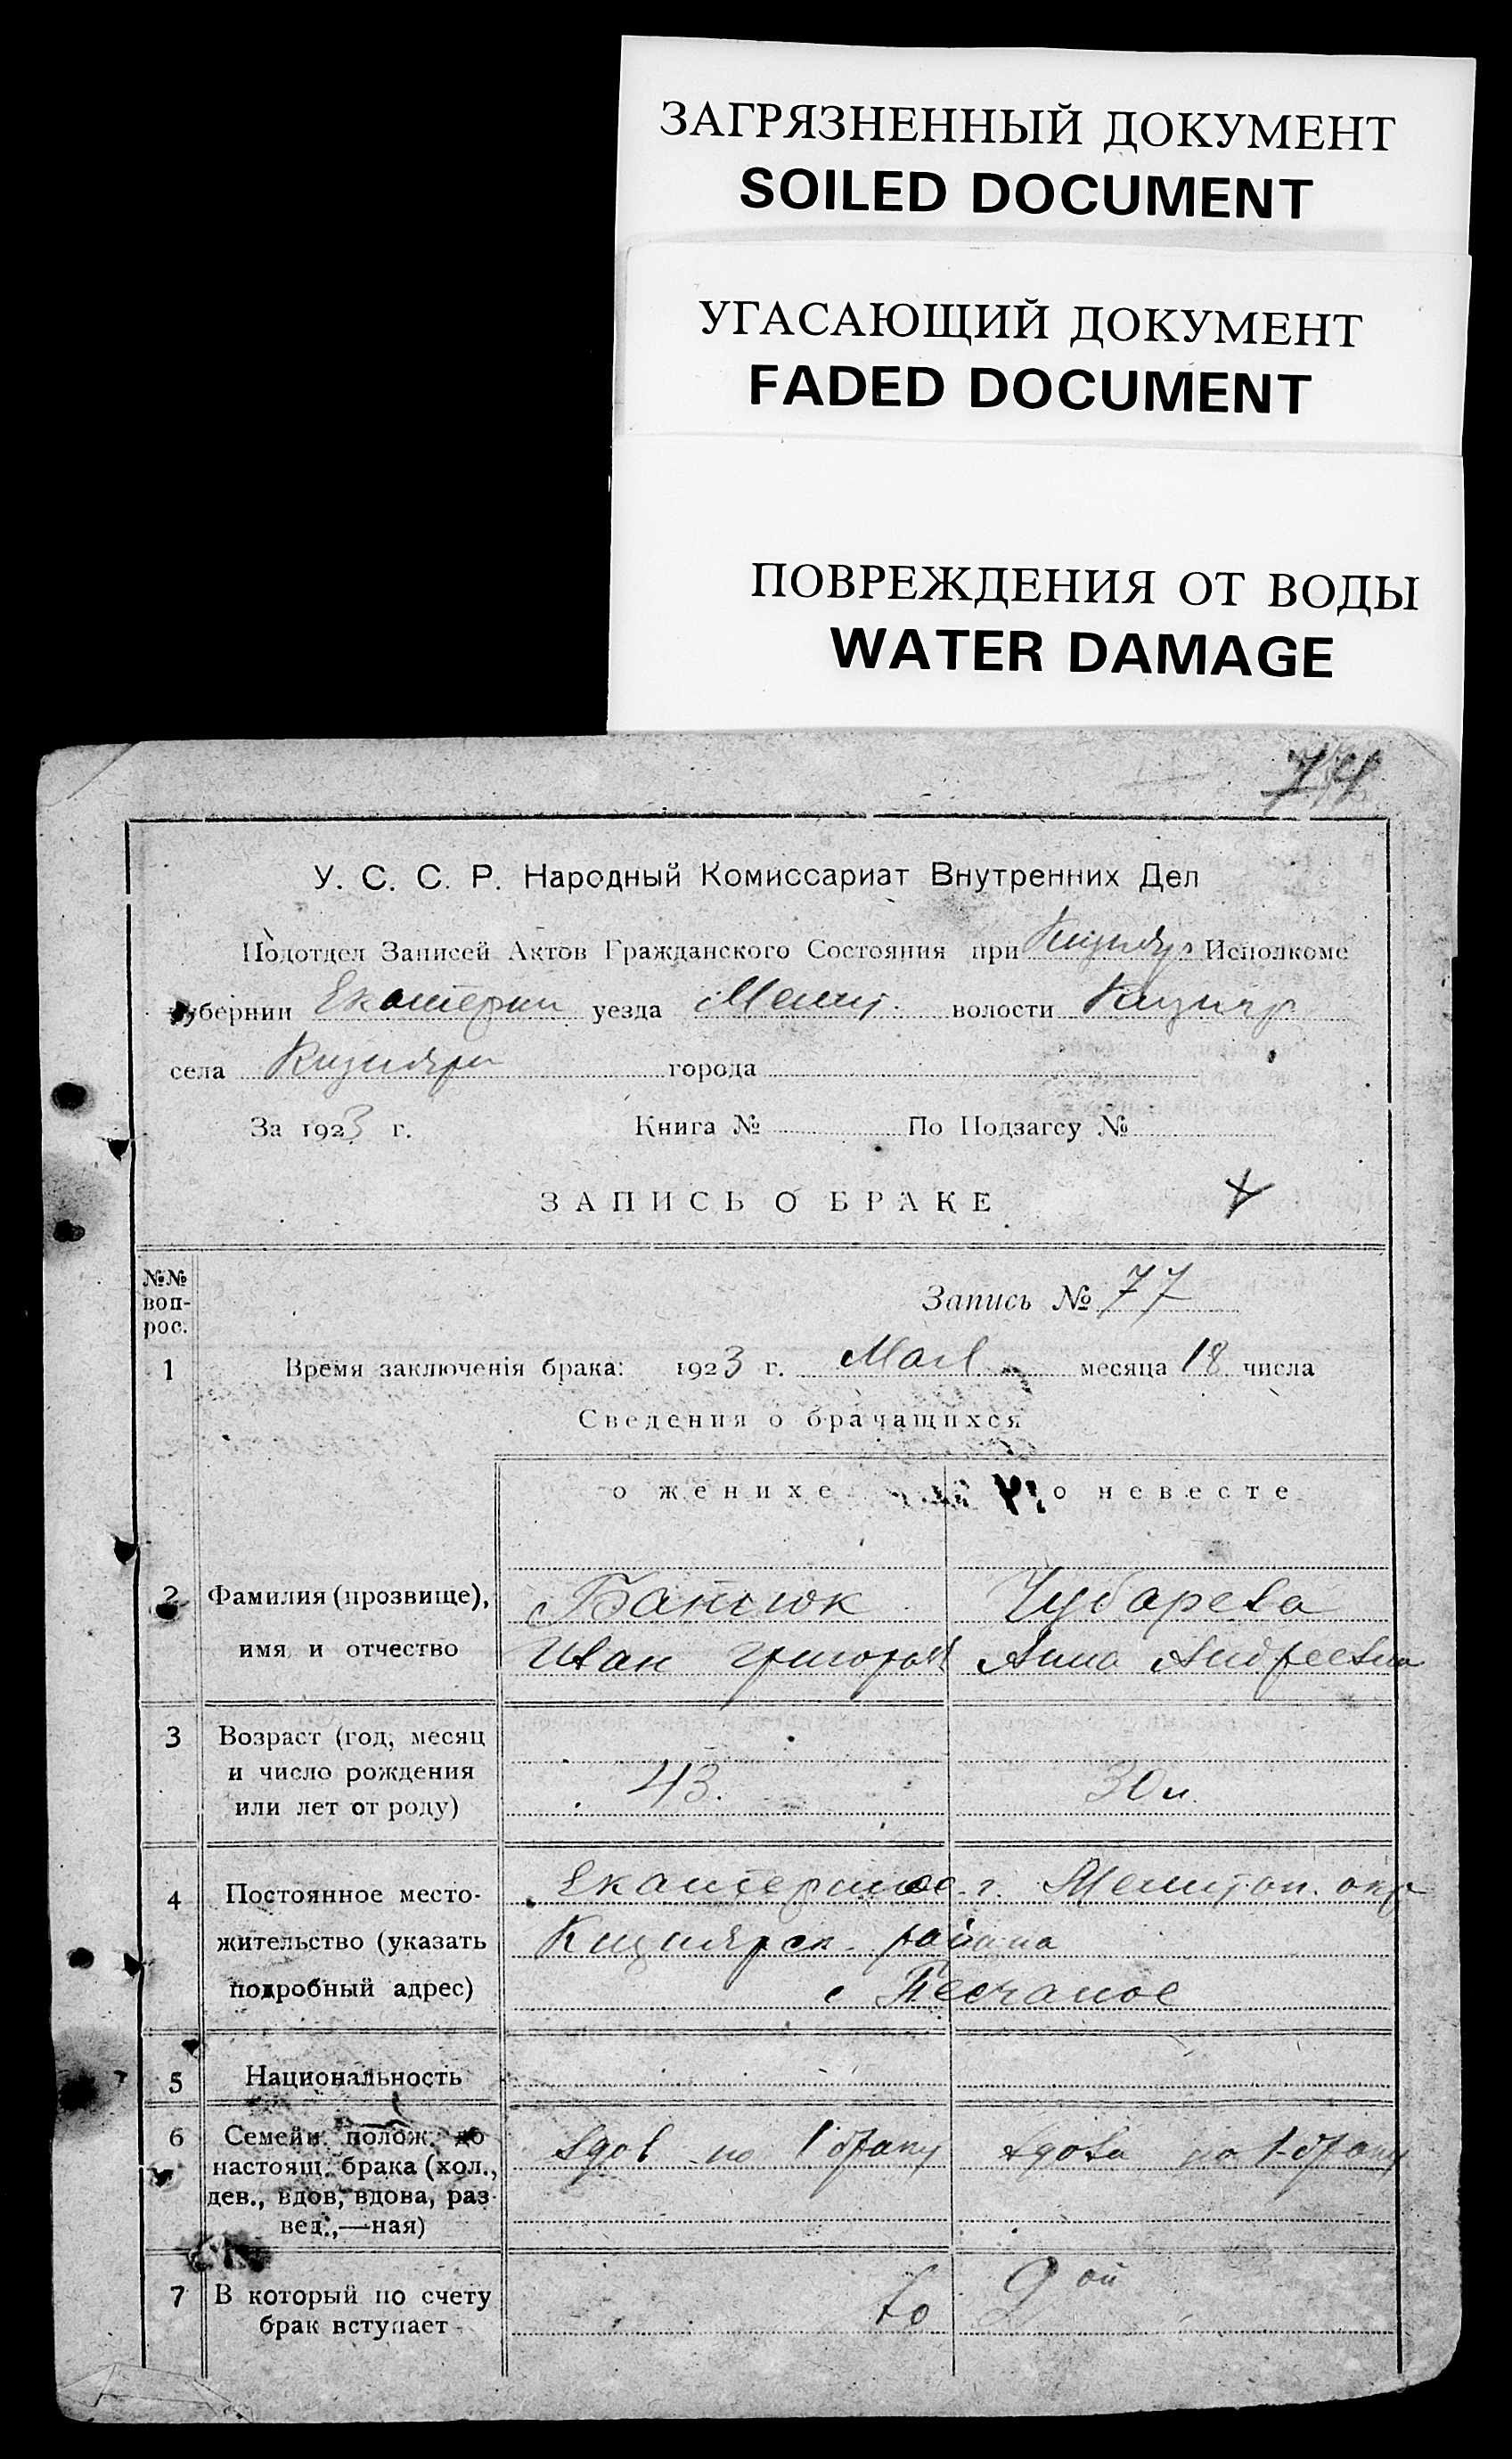 ЗАГРЯЗНЕННЫЙ ДОКУМЕНТ
SOILED DOCUMENT
УГАСАЮЩИЙ ДОКУМЕНТ
FADED DOCUMENT
ПОВРЕЖДЕНИЯ ОТ ВОДЫ
WATER DAMAGE
У. С. С. Р. Народный Комиссариат Внутренних Дел
Подотдел Записей Актов Гражданского Состояния при Кизияр. Исполкоме
губернии Екатерин уезда Мелит. волости Кизияр
села Кизияры города
За 1923 г. Книга № По Подзагсу №
ЗАПИСЬ О БРАКЕ
№№ воп-рос.
Запись № 77
1 Время заключенія брака: 1923 г. Мая месяца 18 числа
Сведения о брачащихся
о женихе о невесте
2 Фамилия (прозвище), Чубарева
имя и отчество Иван Григорьев Анна Андреевна
3 Возраст (год, месяц
и число рождения 43. 30 л.
или лет от роду)
4 Постоянное место- Екатеринос. г. Мелитоп. окр
жительство (указать Кизиярск. района
подробный адрес) с Песчаное
5 Национальность
6 Семейн. полож. до вдов по 1 браку вдова по 1 браку
настоящ. брака (хол.,
дев., вдов, вдова, раз-
вед.,—ная)
7 В который по счету во 2ой
брак вступает